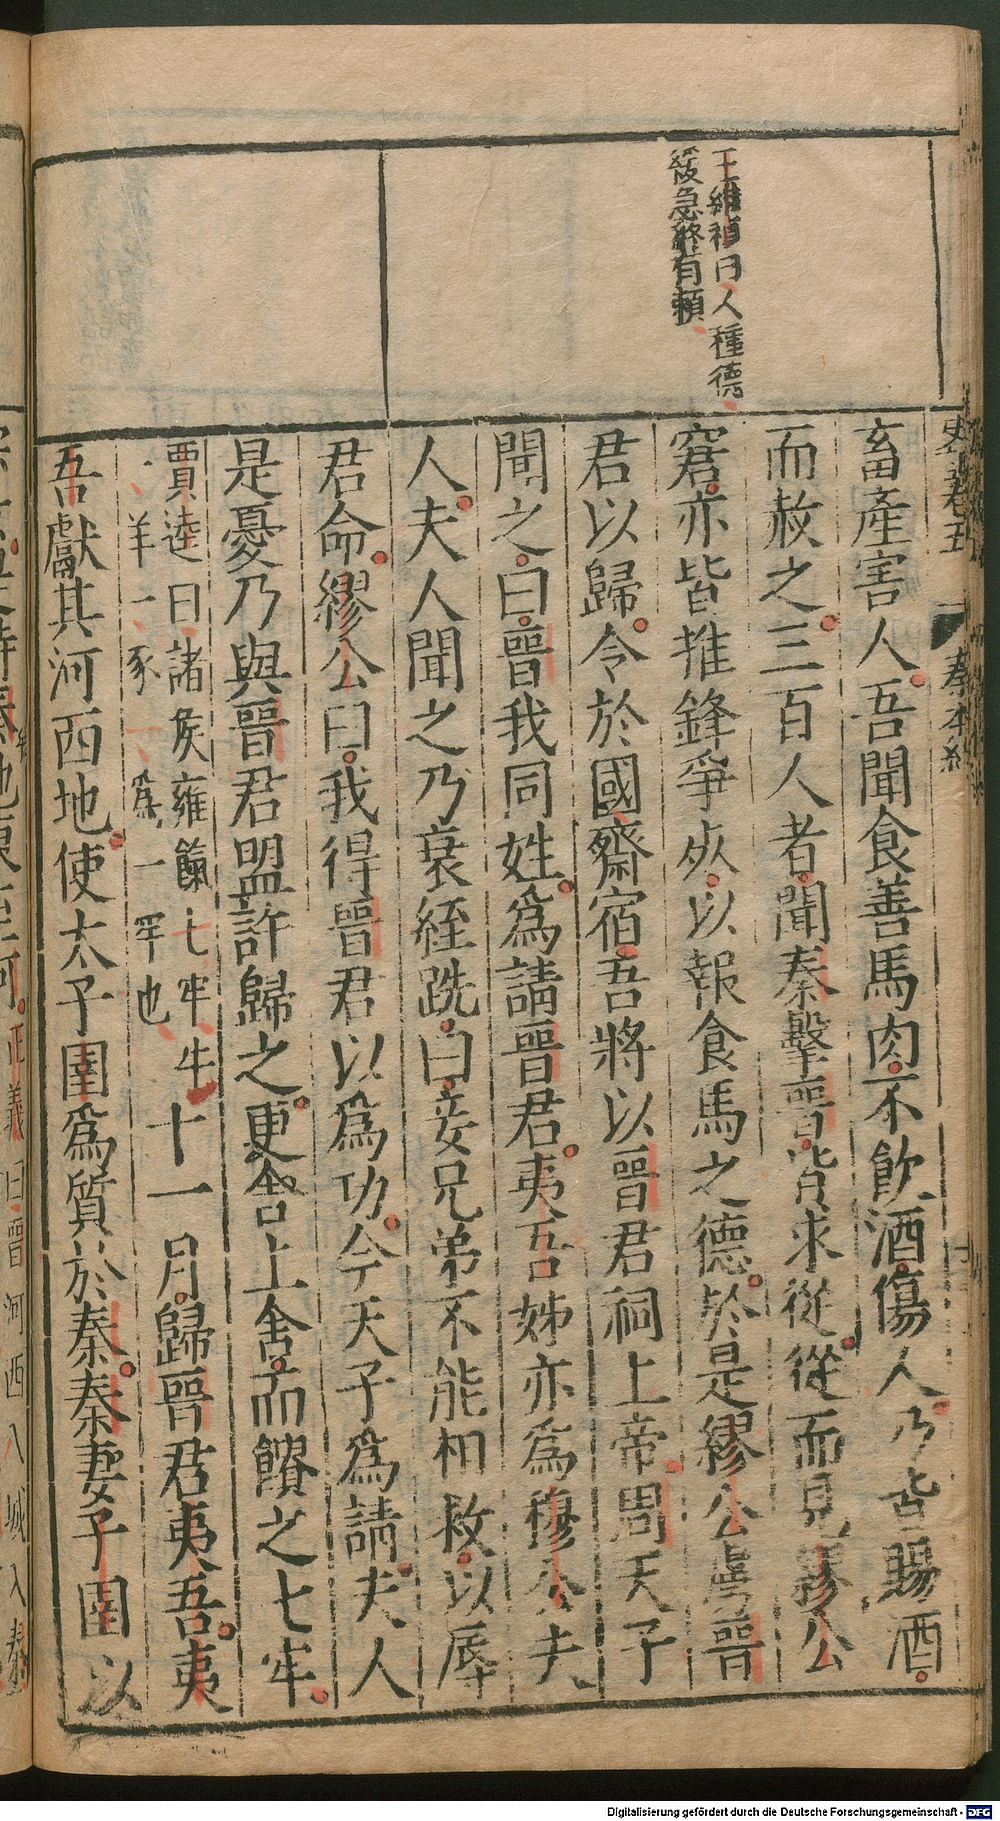 王維禎曰人種德
緩急終有賴
畜產害人吾聞食善馬肉不飲酒傷人乃皆賜酒
而赦之三百人者聞秦擊晉皆求從從而見繆公
窘亦皆推鋒爭死以報食馬之德於是繆公虜晉
君以歸令於國齋宿吾將以晉君祠上帝周天子
聞之曰晉我同姓爲請晉君夷吾姊亦爲穆公夫
人夫人聞之乃衰絰跣曰妾兄弟不能相救以辱
君命繆公曰我得晉君以爲功今天子爲請夫人
是憂乃與晉君盟許歸之更舍上舍而饋之七牢
賈逵曰諸侯雍餼七牢牛
一羊一豕一爲一牢也
十一月歸晉君夷吾夷
吾獻其河西地使太子圉爲質於秦秦妻子圉以
史記卷五
秦本紀
正義曰晉河西八城入秦
Digitalisierung gefördert durch die Deutsche Forschungsgemeinschaft - DFG